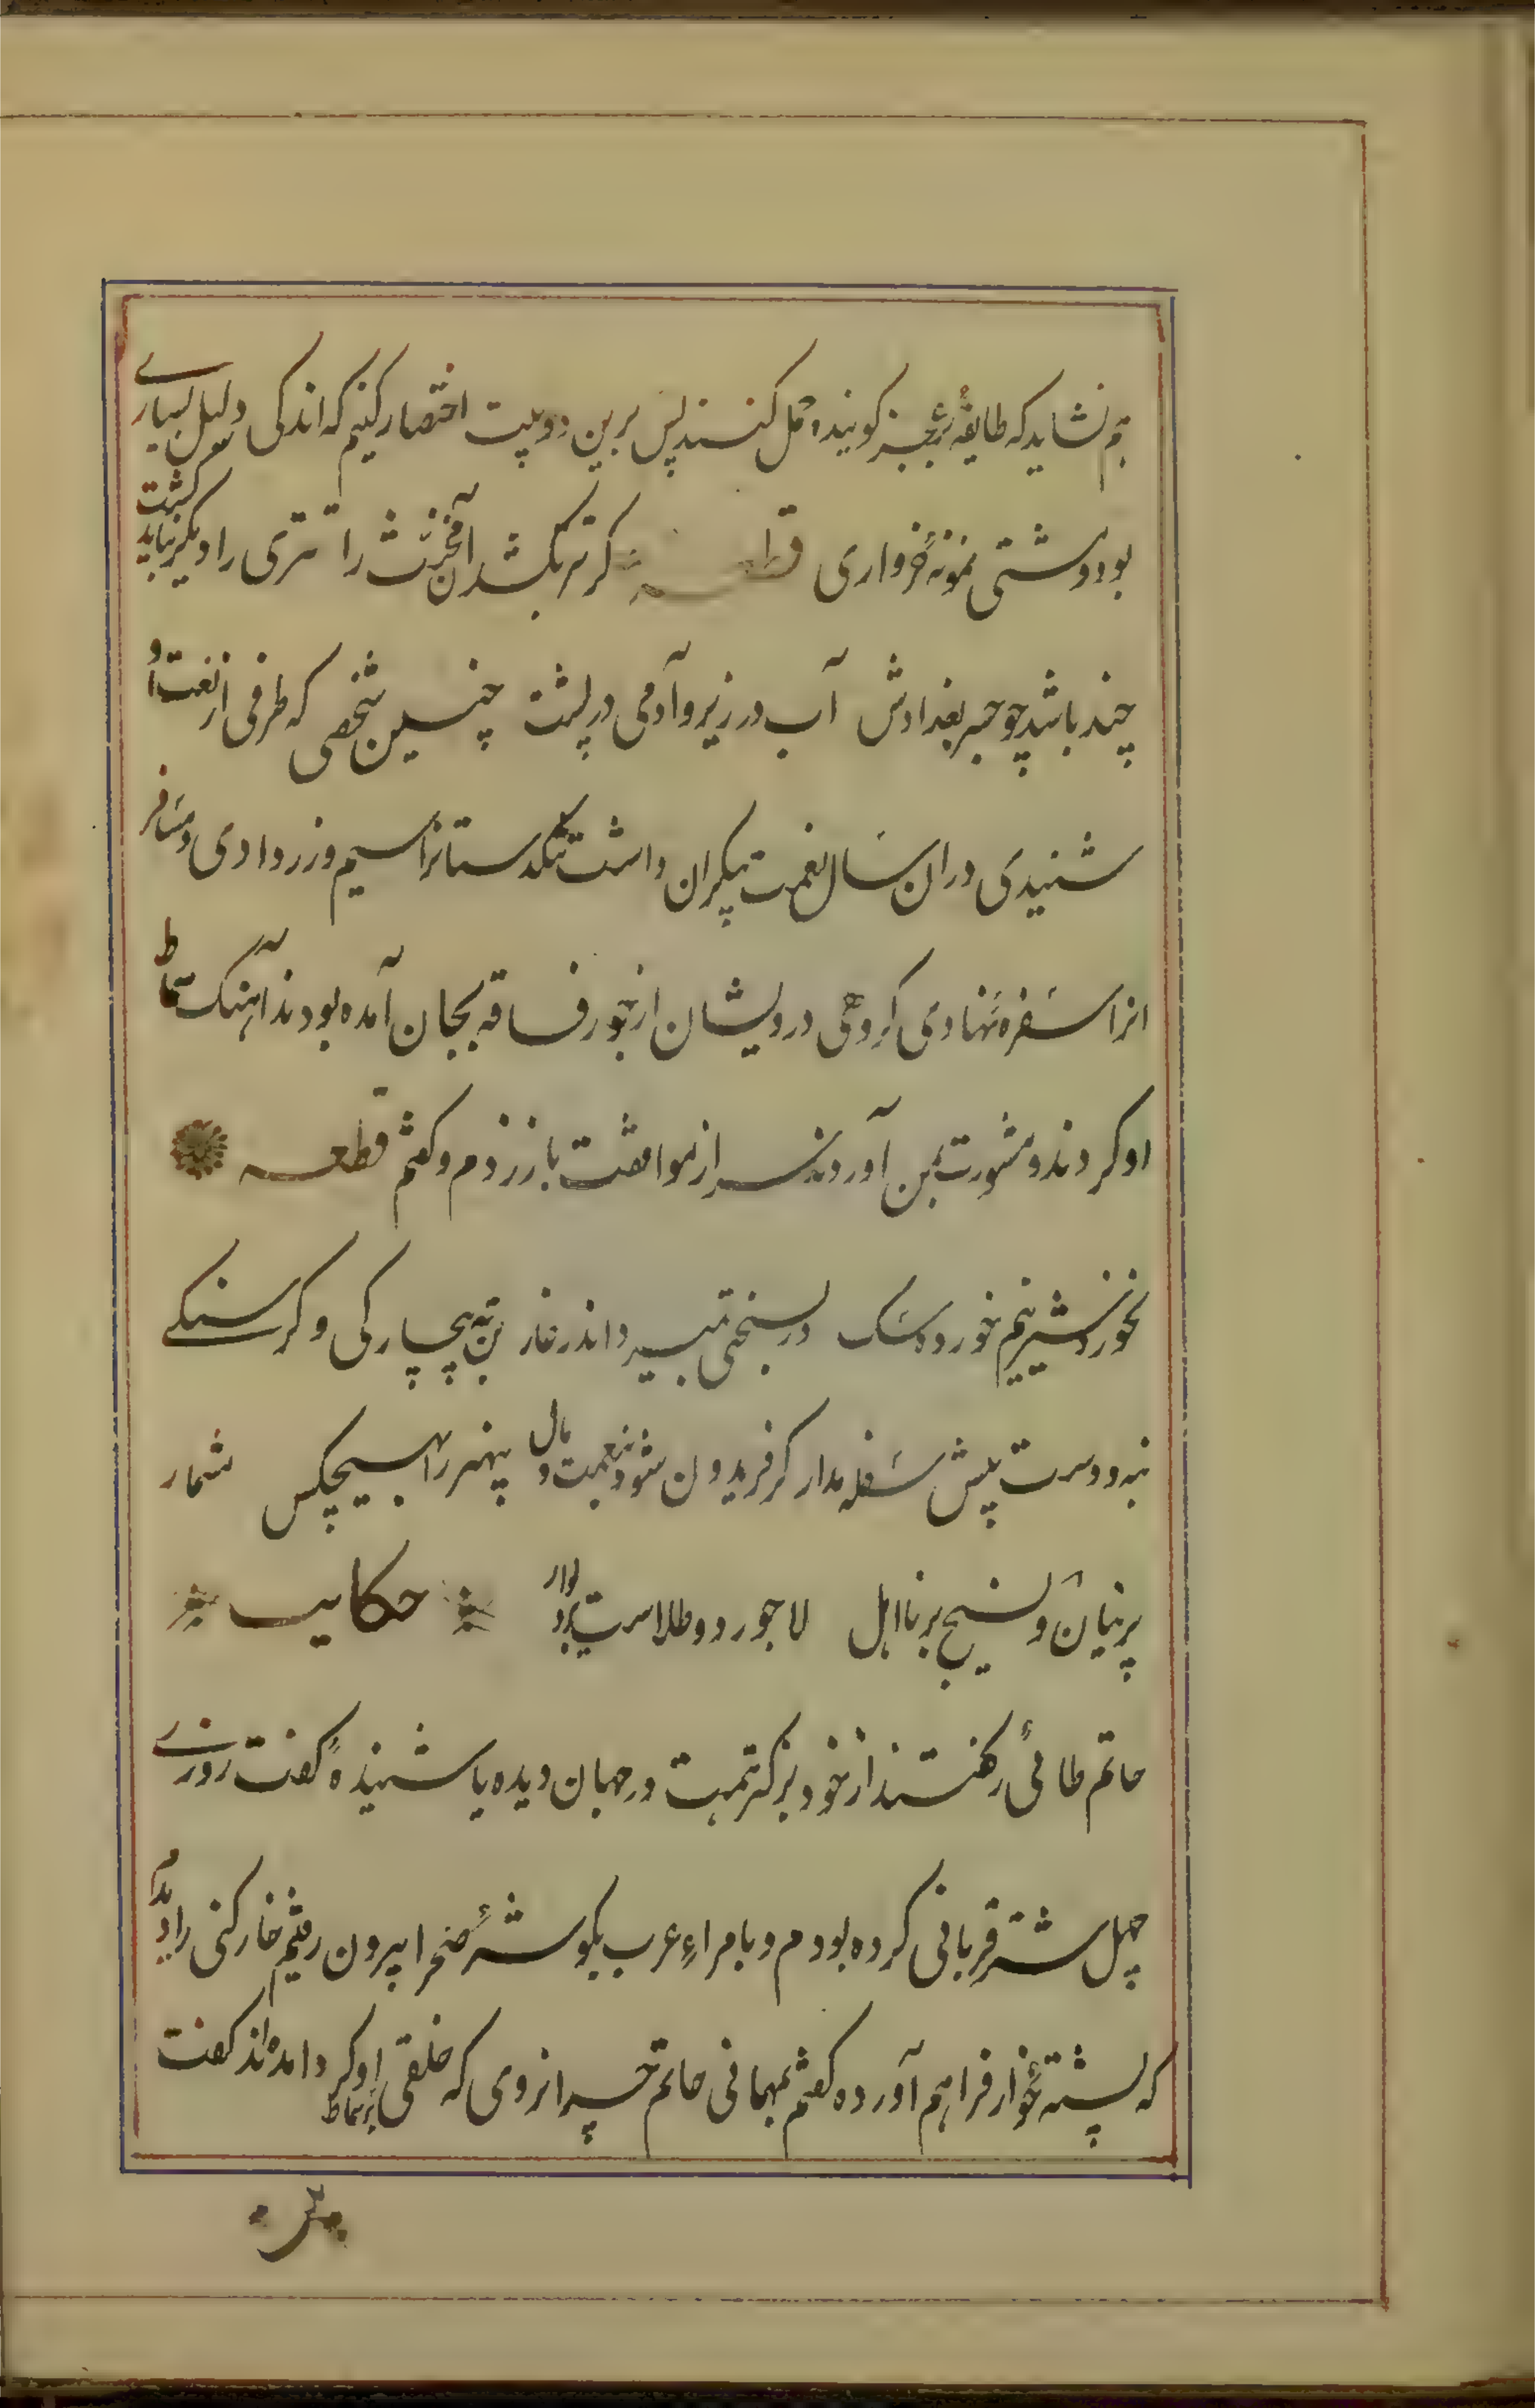 هم نشاید که طایفهٔ بر عجز گوینده حمل کنند پس برین دو بیت اختصار کنیم که اندکی دلیل بسیاری
بود و مشتی نمونهٔ خرواری قطعه گر تتر بکشد آن مخنث را تتری را دیگر نباید کشت
چند باشد چو جسر بغدادش آب در زیر و آدمی در پشت چنین شخصی که طرفی از نعت او
شنیدی در آن سال نعمت بیکران داشت تنگدستانرا سیم و زر دادی و مسافر
انرا سفره نهادی گروهی درویشان از جور فاقه بجان آمده بودند آهنگ سماط
او کردند و مشورت بمن آوردند سر از موافقت باز زدم و گفتم قطعه
نخورد شیر نیم خورده سگ ور بسختی بمیرد اندر غار تن به بیچارگی و گرسنگی
بنه و دست پیش سفله مدار گر فریدون شود بنعمت و مال بیهنر را بهیچکس شمار
پرنیان و نسیج بر نااهل لاجورد و طلاست بر دیوار حکایت
حاتم طائی را گفتند از خود بزرگ همت در جهان دیده یا شنیده گفت روزی
چهل شتر قربانی کرده بودم و با مراء عرب بگوشهٔ صحرا بیرون رفتم خارکنی را دیدم
که پشته خار فراهم آورده گفتم بمهمانی حاتم چرا نروی که خلقی بر سماط او گرد آمده اند گفت